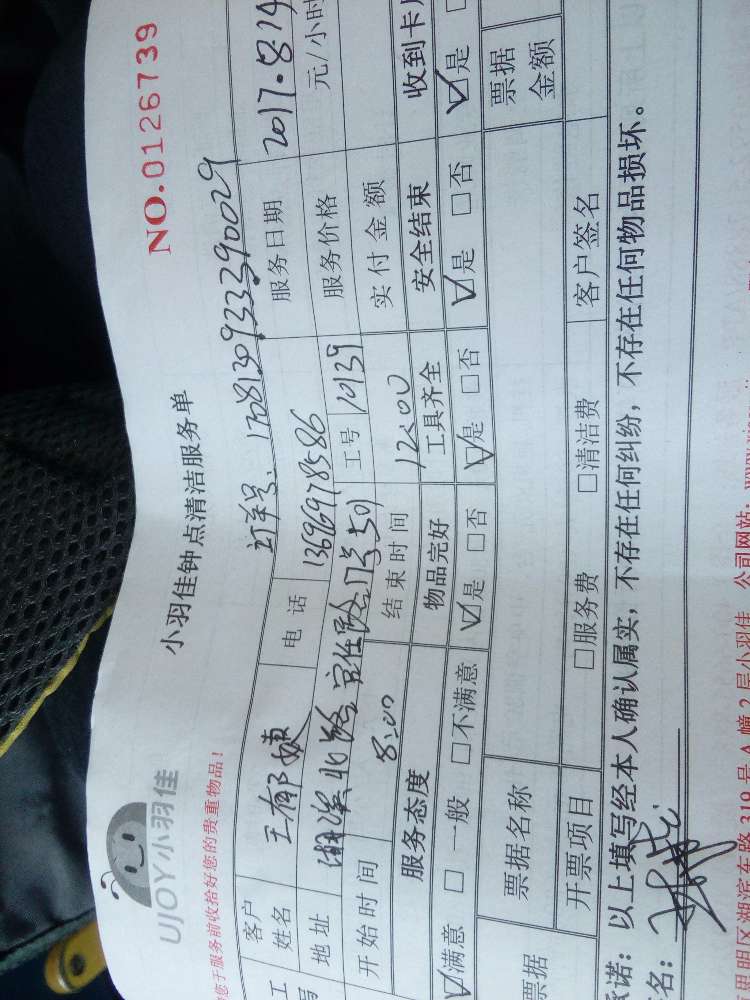 UJOY小羽佳
小羽佳钟点清洁服务单
NO.0126739
您于服务前收拾好您的贵重物品!
订单号: 1708130933390029
客户姓名 王郁 电话 13696978586 服务日期 2017.8.14
地址 湖滨北路 501 工号 10139 服务价格 元/小时
开始时间 8:00 结束时间 12:00 实付金额
服务态度 物品完好 工具齐全 安全结束 收到卡
☑满意 □一般 □不满意 ☑是 □否 ☑是 □否 ☑是 □否 ☑是
票据 票据名称 票据金额
开票项目 □服务费 □清洁费 客户签名
承诺: 以上填写经本人确认属实,不存在任何纠纷,不存在任何物品损坏。
名:
思明区湖滨东路319号A幢2层小羽佳 公司网站: